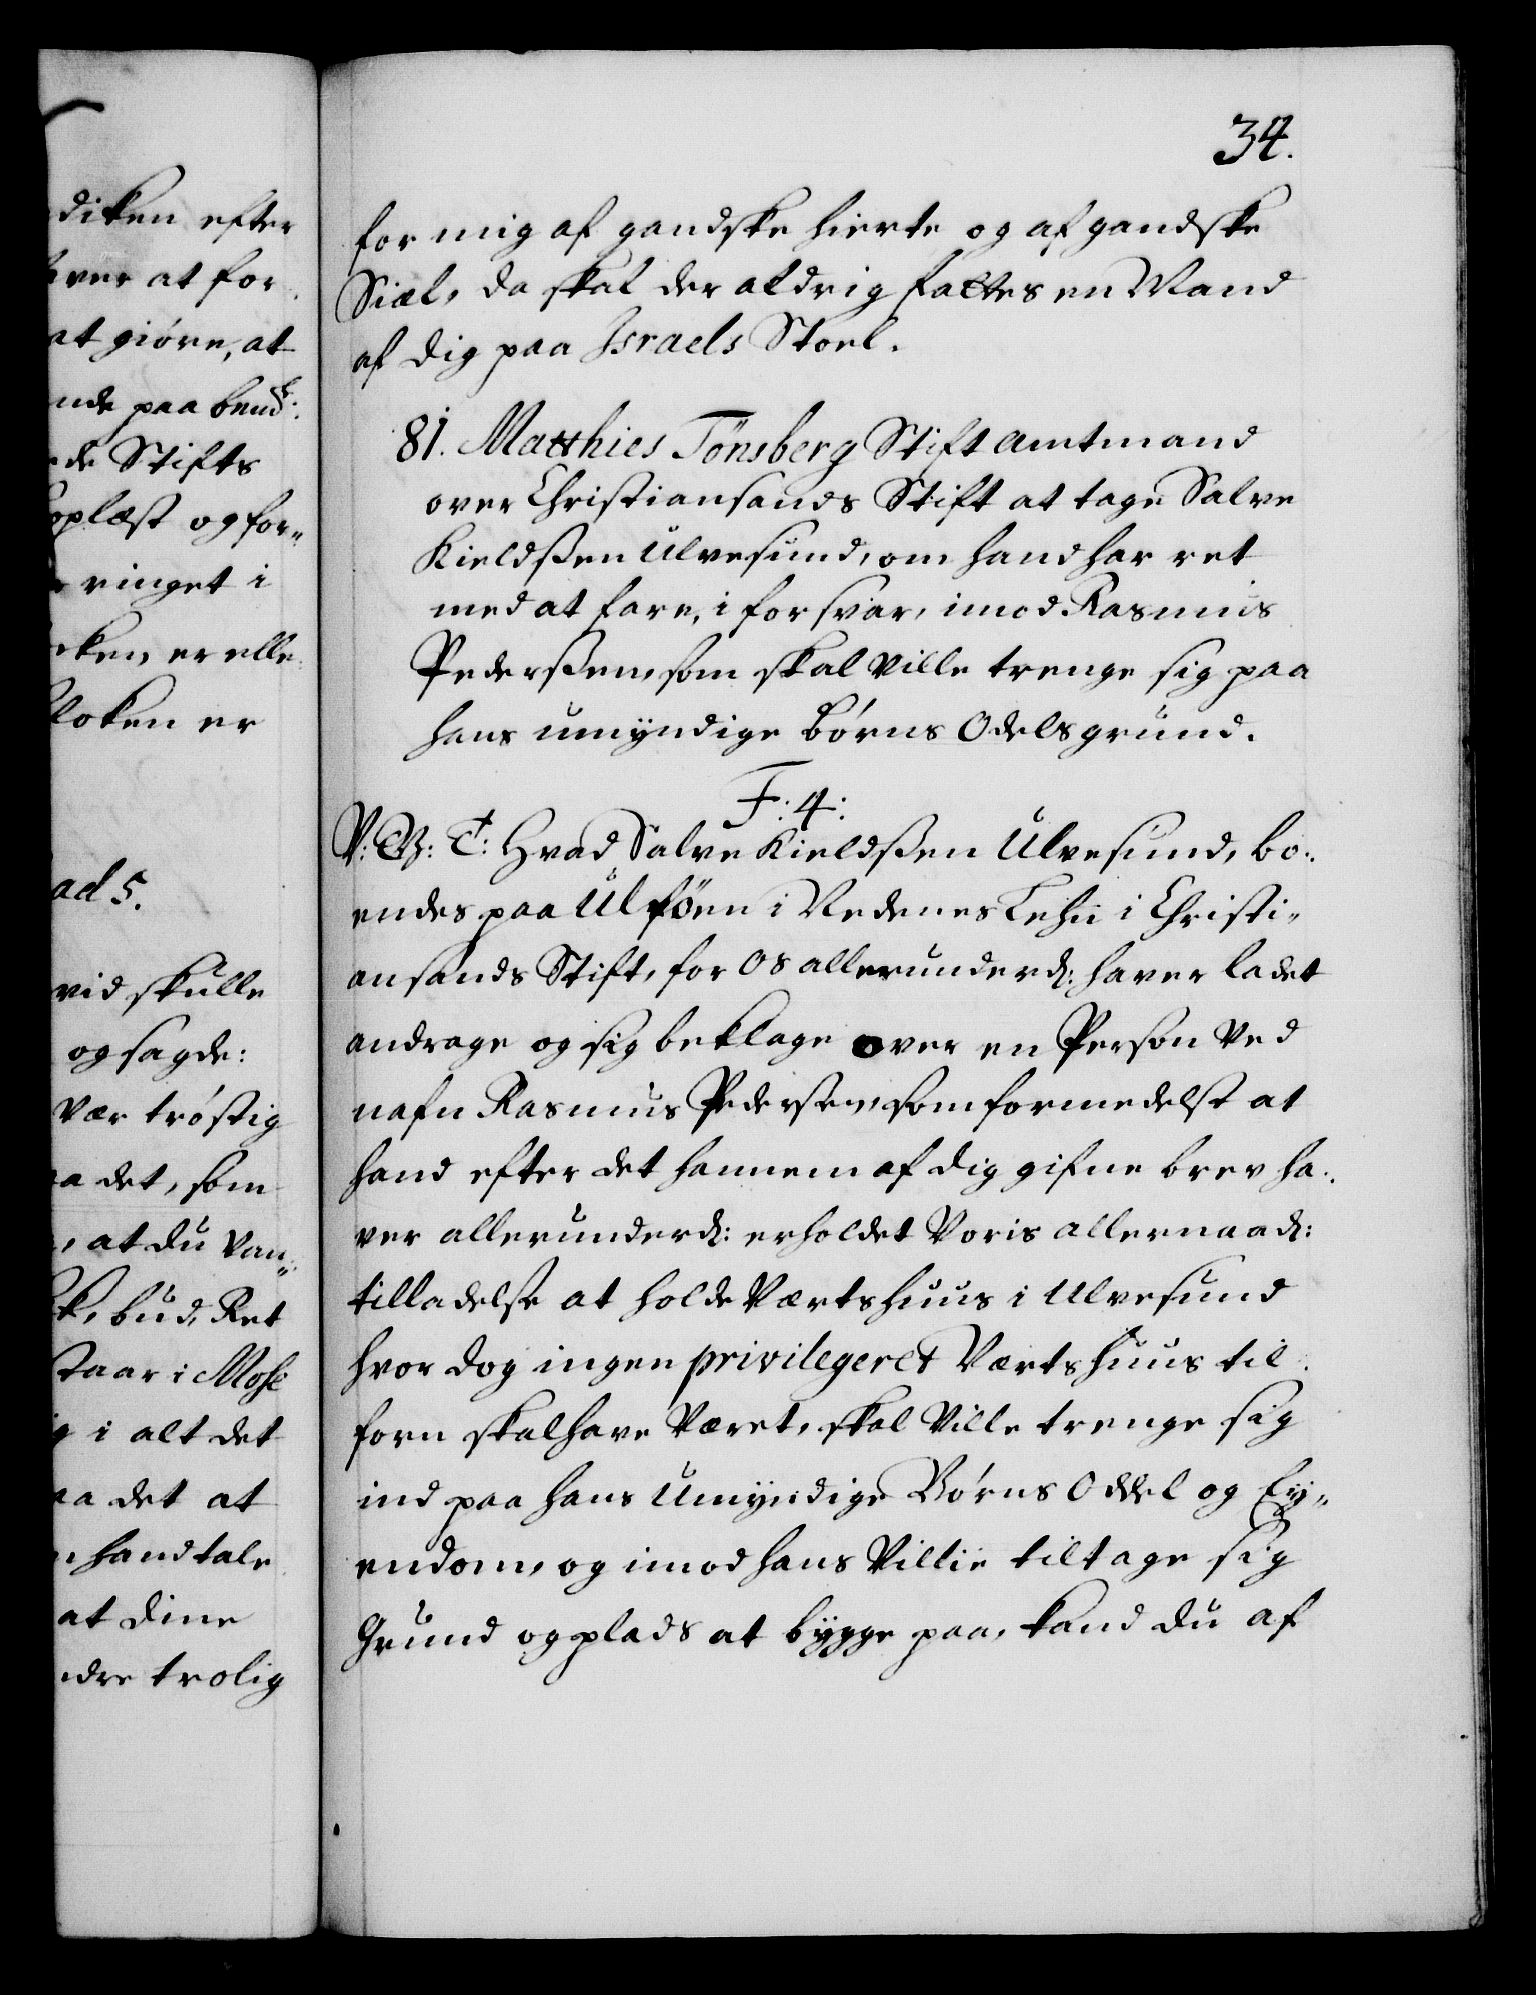 diken efter
ver at for
at giöre, at
nde paa bemt:
de Stifts
oplæst og for„
ringet i
ken, er elle
loken er
ad 5.
vid skulle
og sagde:
Vær tröstig
a det, som
, at du Van„
k, bud, Ret
staar i Mose
i alt det
aa det at
hand tale
at dine
dre trolig
34.
for mig af gandske hierte og af gandske
Siæl, da skal der aldrig fattes en Mand
af dig paa Israels Stoel.
81. Matthies Tönsberg Stiftamtmand
over Christiansands Stift at tage Salve
Kieldssen Ulvesund, om hand har ret
med at fare, i forsvar, imod Rasmus
Pederssen, som skal ville trenge sig paa
hans umÿndige Börns Odelsgrund.
F: 4:
V: G: T: Hvad Salve Kieldssen Ulvesund, bo„
endes paa Ulföen i Nedenes Lehn i Christi„
ansands Stift, for Os allerunderd: haver ladet
andrage og sig beklage over en Person Ved
nafn Rasmus Pedersen, som formedelst at
hand efter det hannem af dig gifne brev ha„
ver allerunderd: erholdet Voris allernaad:
tilladelse at holde Vertshuus i Ulvesund
hvor dog ingen privilegeret Vertshuus til„
forn skal have Været, skal Ville trenge sig
ind paa hans Umÿndige Börns Oddel og Eÿ„
endom, og imod hans Villie tiltage sig
Grund og plads at bygge paa, kand du af